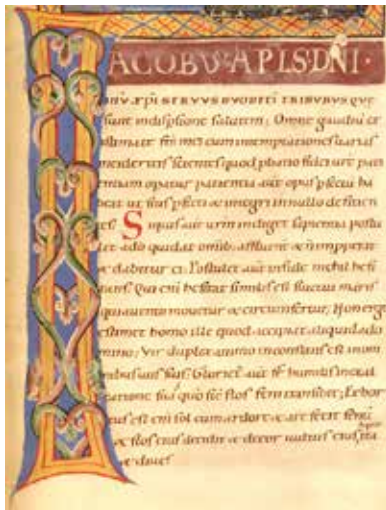 IACOBVS·APLS·DNI·
IHV·XPI SERVVS DVODECI TRIBVBVS QVE
sunt in dispsione salutem; Omne gaudiu ex
istimate frs mei cum in temptationes uarias
incideritis scientes quod pbatio fidei ure pati
entiam operatur patientia aut opus pfectu ha
beat ut sitis pfecti & integri in nullo deficien
tes; Siquis aut urm indiget sapientia postu
let a do qui dat omnib; affluent & n improperat
& dabitur ei; Postulet aut in fide nichil hesi
tans; Qui eni hesitat similis est fluctui maris
qui a uento mouetur & circumfertur; Non ergo
estimet homo ille quod accipiat aliquid a do
mino; Vir duplex animo inconstans est in om
nibus uiis suis; aut fr humilis in exal
tatione sua quo sic flos feni transibit; Exor
tus est eni sol cum ardore & arefecit fenu
& flos eius decidit & decor uultus eius ita
& diues